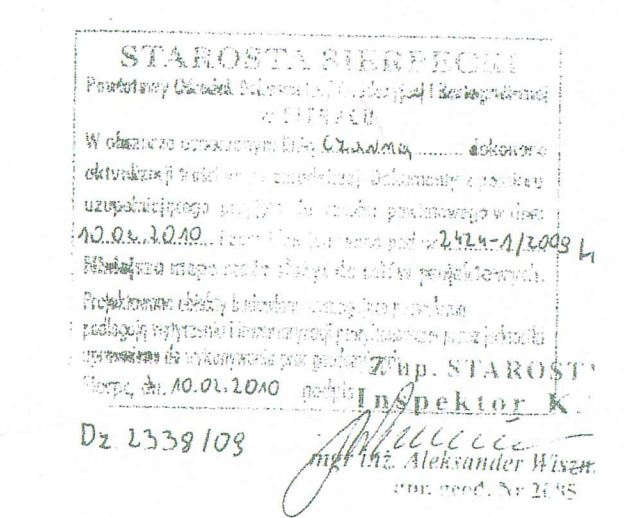 STAROSTA SIERPECKI
Powiatowy Ośrodek Dokumentacji Geodezyjnej i Kartograficznej
w SIERPCU
W obszarze oznaczonym linią Czarną dokonano
aktualizacji treści mapy zasadniczej. Dokumenty z pomiaru
uzupełniającego przyjęto do zasobu powiatowego w dniu
10.02.2010 i pod nr 2424-1/2009
Niniejsza mapa może służyć do celów projektowych.
Projektowane obiekty budowlane
podlegają wytyczeniu i inwentaryzacji przez jednostki
uprawnione do wykonywania prac geodezyjnych
Sierpc, dn. 10.02.2010 podpis
Z up. STAROSTY
Inspektor K
Dz 2338/09
mgr inż. Aleksander Wiszn
upr. geod. Nr